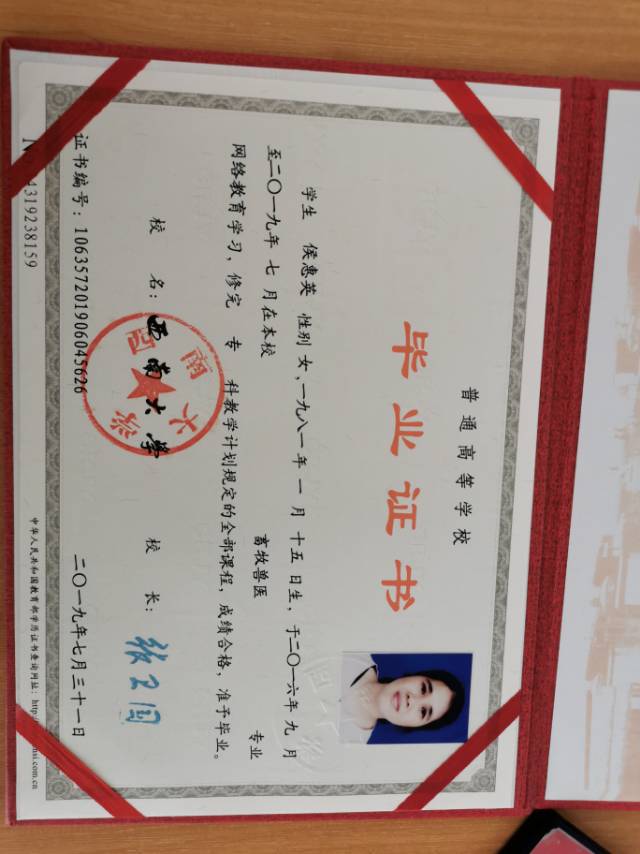 普通高等学校
毕业证书
学生 侯惠英 性别 女,一九八一年 一 月 十五 日生,于二〇一六年 九 月
至二〇一九年 七 月在本校 畜牧兽医 专业
网络教育学习,修完 专 科教学计划规定的全部课程,成绩合格,准予毕业。
校 名: 西南大学 校 长: 张卫国
西南大学
证书编号:106357201906045626 二〇一九年七月三十一日
4319238159
中华人民共和国教育部学历证书查询网址:http:/
si.com.cn